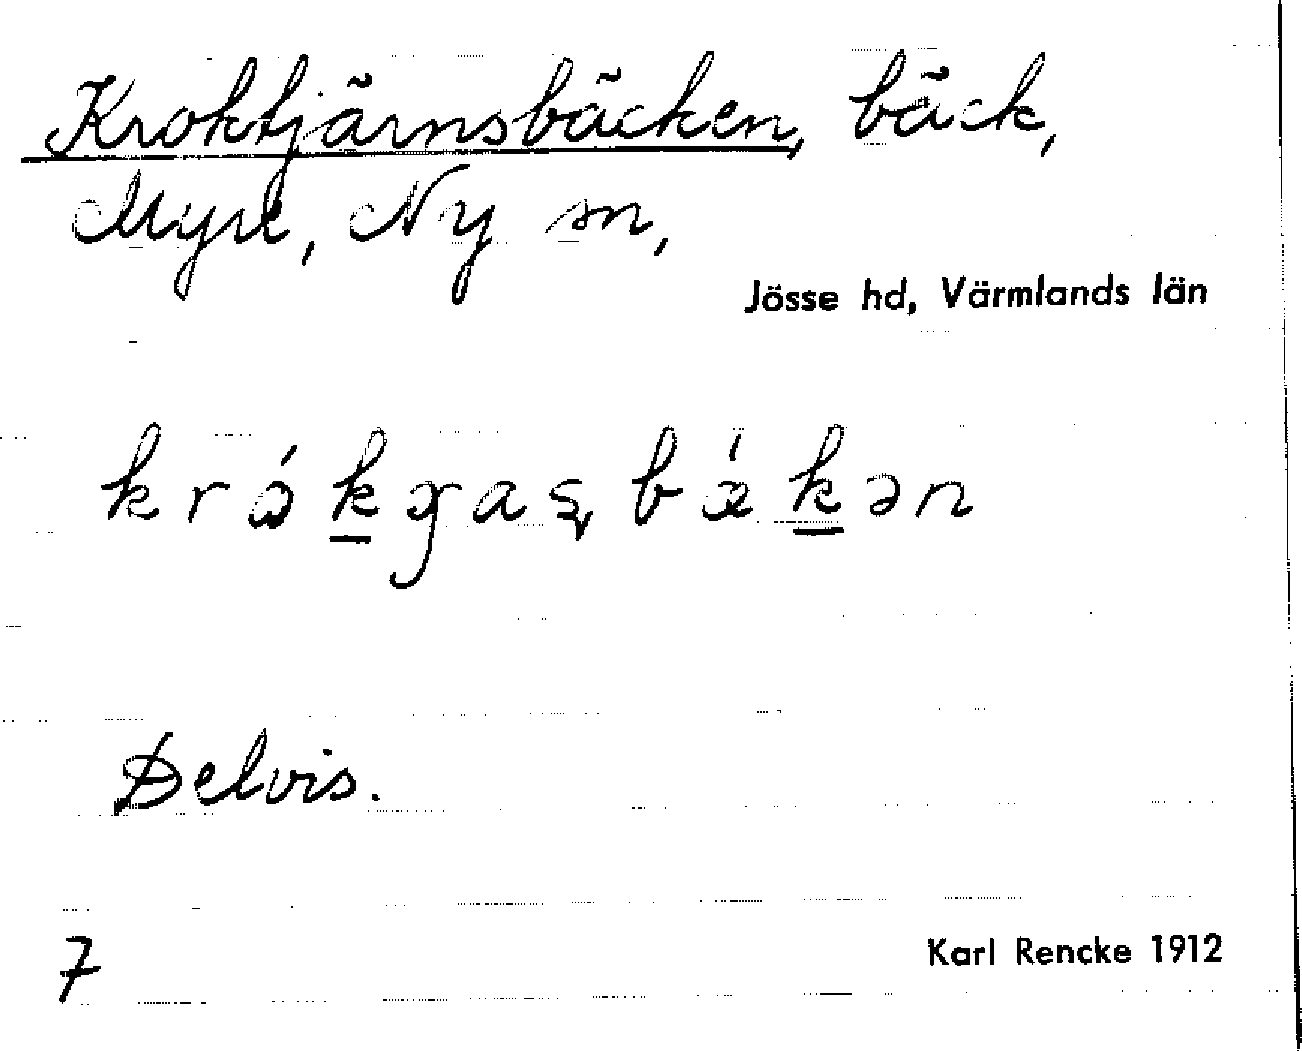 Kroktjärnsbäcken, bäck,
Myrе, Ny sn,
Jösse hd, Värmlands län
Delvis.
7
Karl Rencke 1912